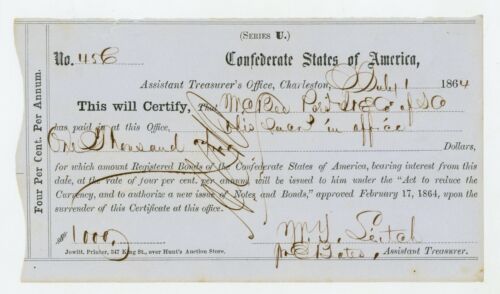 (SERIES U.)
No. 456 Confederate States of America,
Assistant Treasurer's Office, Charleston, July 1 1864
This will Certify, That
has paid in at this Office, in office
One Thousand Dollars,
for which amount Registered Bonds of the Confederate States of America, bearing interest from this
date, at the rate of four per cent. per annum, will be issued to him under the "Act to reduce the
Currency, and to authorize a new issue of Notes and Bonds," approved February 17, 1864, upon the
surrender of this Certificate at this office.
1000
Assistant Treasurer.
Jowitt, Printer, 347 King St., over Hunt's Auction Store.
Four Per Cent. Per Annum.